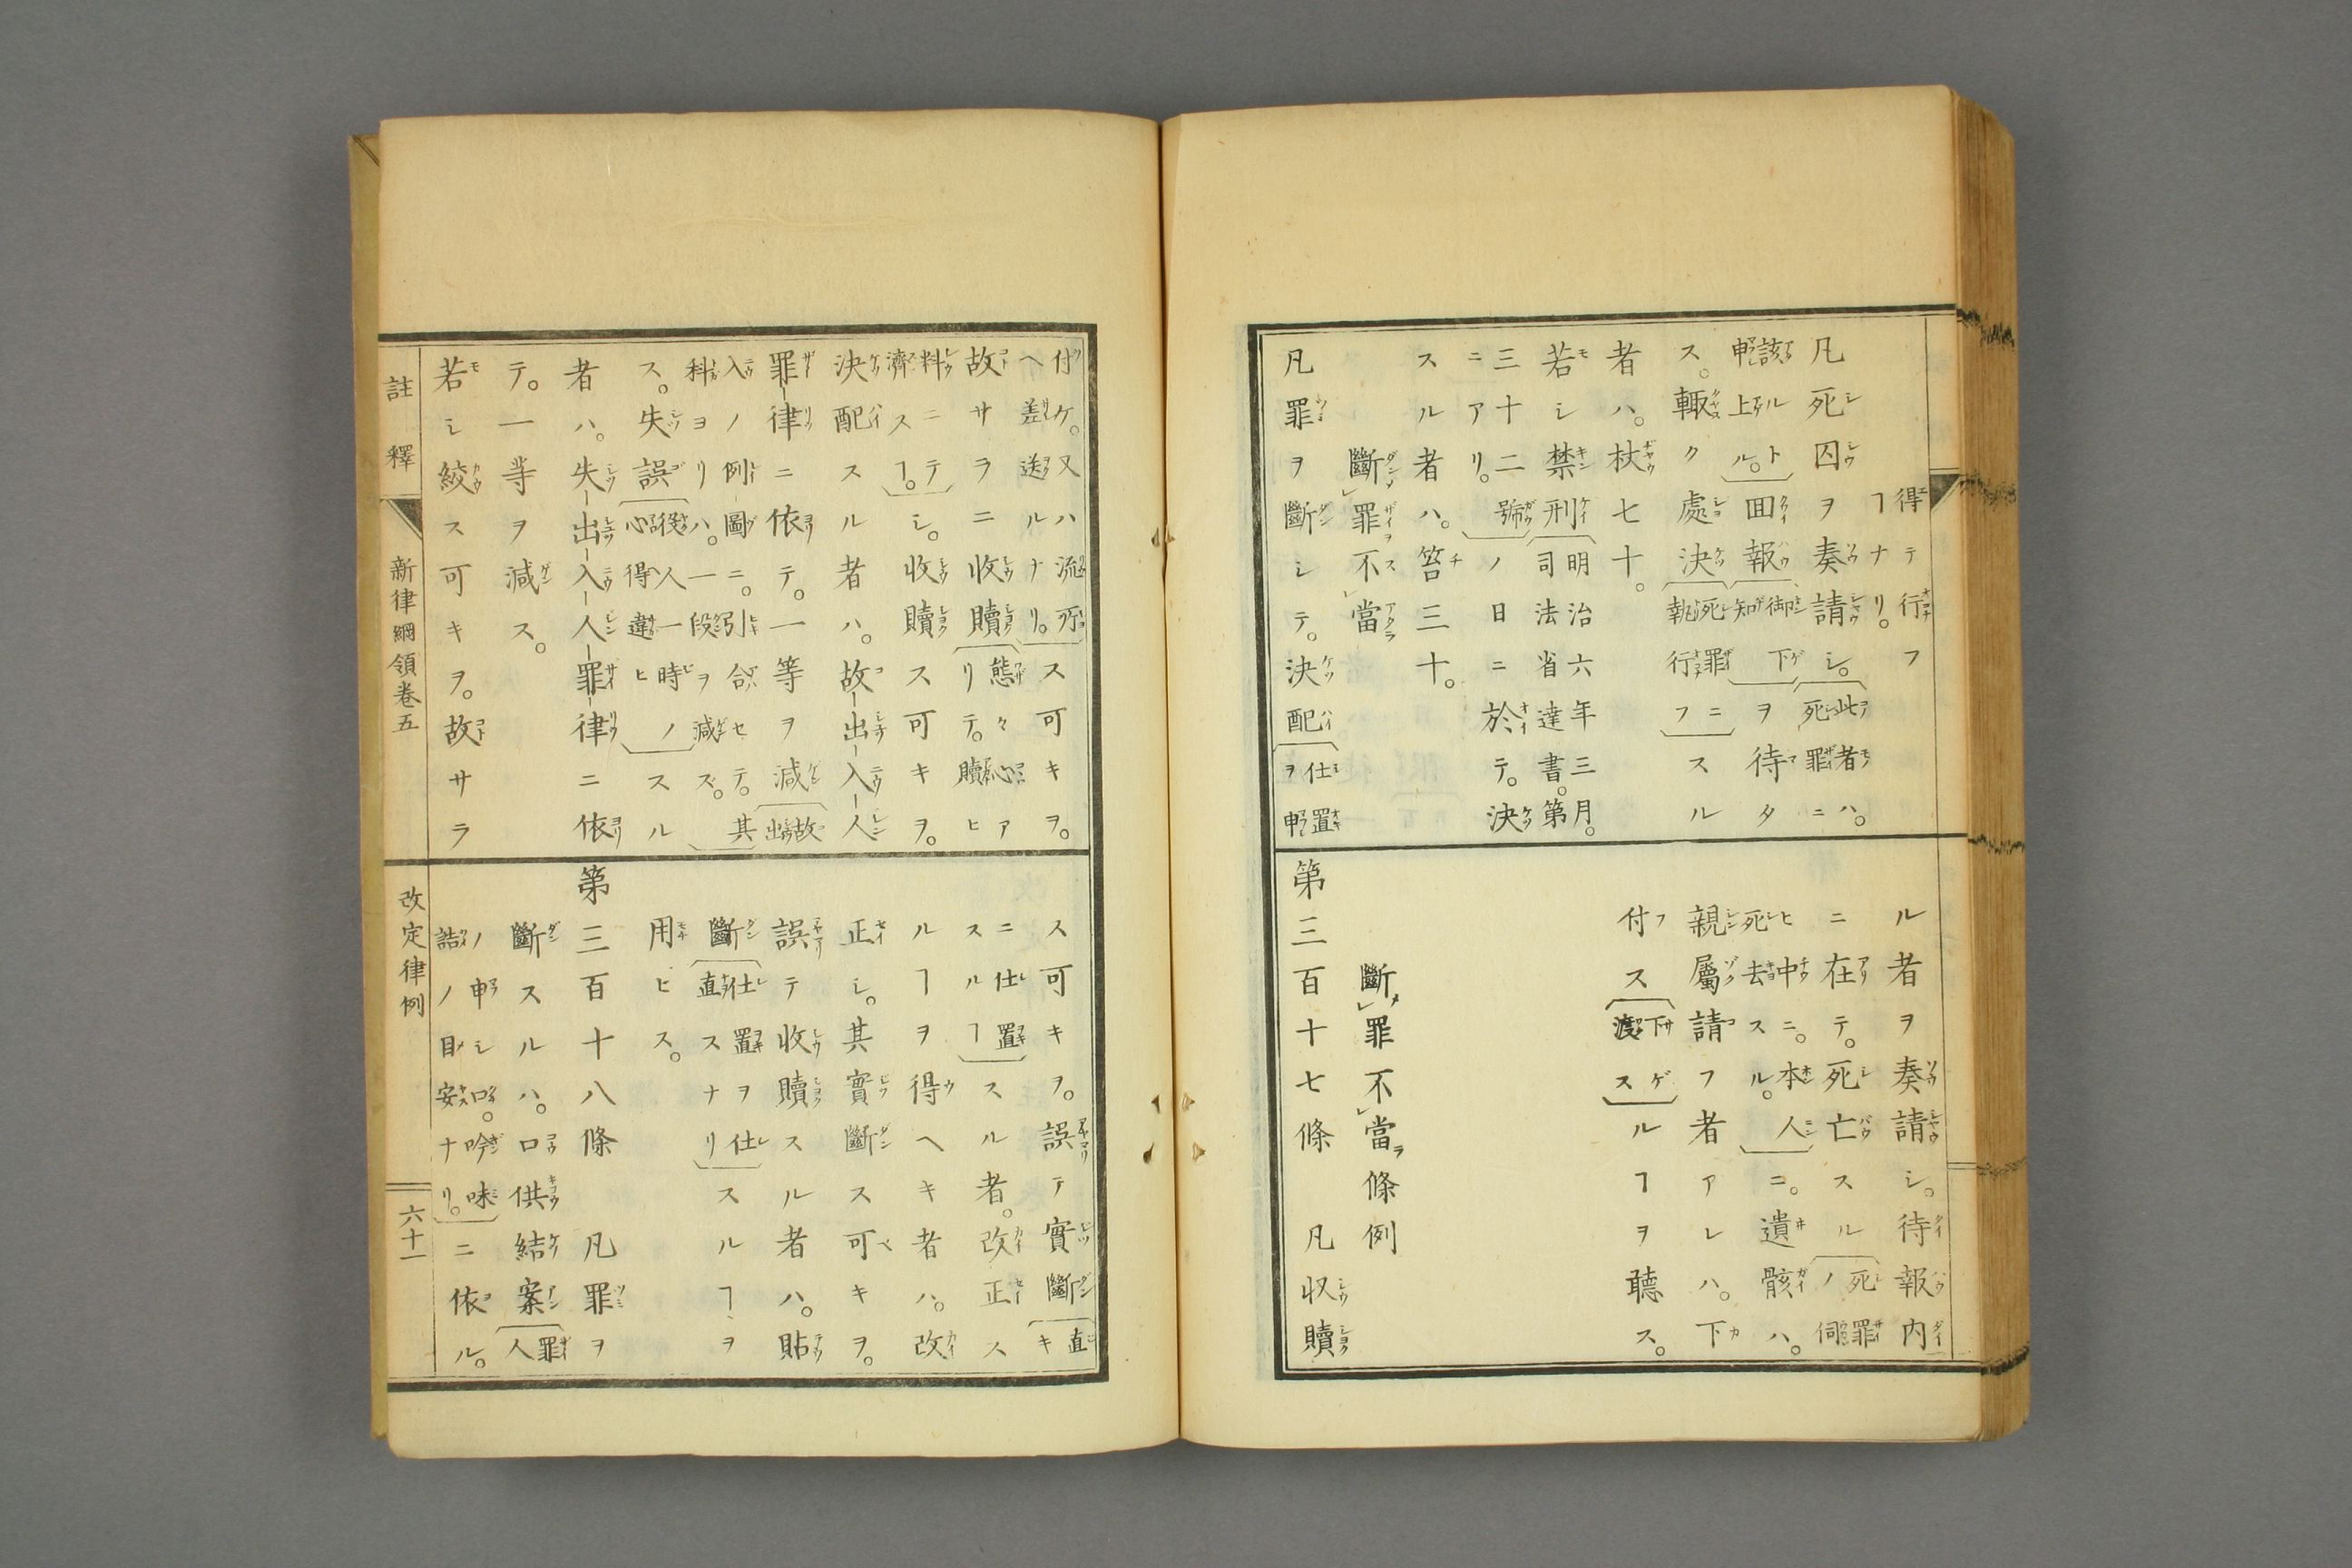 得テ行フヿナリ。
凡死囚ヲ奏請シ。此者ハ。死罪ニ
該ルト申上ル。回報御下知ヲ待タ
ス。輙ク處決死罪ニ執行フスル
者ハ。杖七十。
若シ禁刑明治六年三月。司法省達書。第
三十二號ニアリ。ノ日ニ於テ。決
スル者ハ。笞三十。
斷罪不當
凡罪ヲ斷シテ。決配仕置ヲ申
ル者ヲ奏請シ。待報内
ニ在テ。死亡スル死罪ノ伺
ヒ中ニ。本人死去スル。ニ。遺骸ハ。
親屬請フ者アレハ。下
付下ゲ渡ススルヿヲ聽ス。
斷罪不當條例
第三百十七條 凡収贖
付ケ。又ハ流所ヘ差送ルナリ。ス可キヲ。
故サラニ收贖態々心アリテ。贖ヒ
料ニテ濟スヿ。シ。收贖ス可キヲ。
決配スル者ハ。故出入人
罪律ニ依テ。一等ヲ減故出
入ノ例圖ニ。引合セテ。其科ヨリハ。一段ヲ減ズ。
ス。失誤役人一時ノ心得違ヒスル
者ハ。失出入人罪律ニ依
テ。一等ヲ減ス。
若シ絞ス可キヲ。故サラ
ス可キヲ。誤テ實斷直キ
ニ仕置スルヿスル者。改正ス
ルヿヲ得ヘキ者ハ。改
正シ。其實斷ス可キヲ。
誤テ收贖スル者ハ。貼
斷仕置ヲ仕直スナリスルヿヲ
用ヒス。
第三百十八條 凡罪ヲ
斷スルハ。口供結案罪人
ノ申シ口。吟味詰ノ目安ナリ。ニ依ル。
註釋 新律綱領卷五 改定律例 六十一